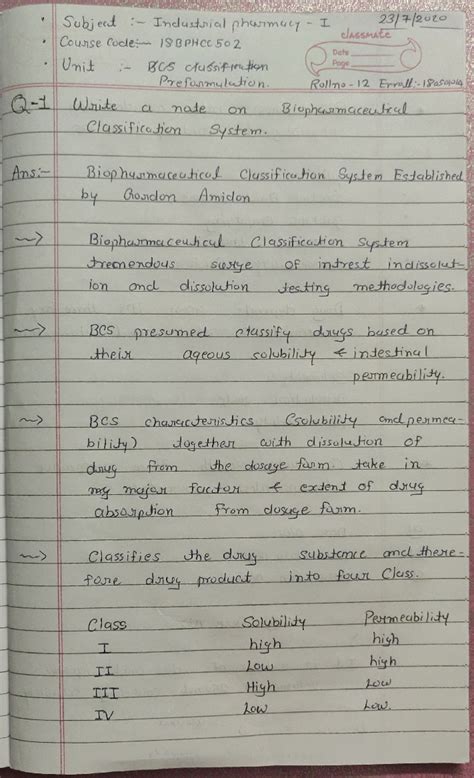 Subject :- Industrial pharmacy - I 23/7/2020
classmate
Course Code:- 18BPHCC502
Date
Page
Unit :- BCS classification
Preformulation.
Rollno - 12 Enroll:-
Q-1 Write a note on Biopharmaceutical
Classification System.
Ans:- Biopharmaceutical Classification System Established
by Gordon Amidon
~> Biopharmaceutical Classification System
tremendous surge of intrest indissolut-
ion and dissolution testing methodologies.
~> BCS presumed classify drugs based on
their aqeous solubility & intestinal
permeability.
~> BCS characteristics (solubility and permea-
bility) together with dissolution of
drug from the dosage form take in
major factor & extent of drug
absorption from dosage form.
~> Classifies the drug substance and there-
fore drug product into four Class.
Class Solubility Permeability
I high high
II Low high
III High Low
IV Low Low